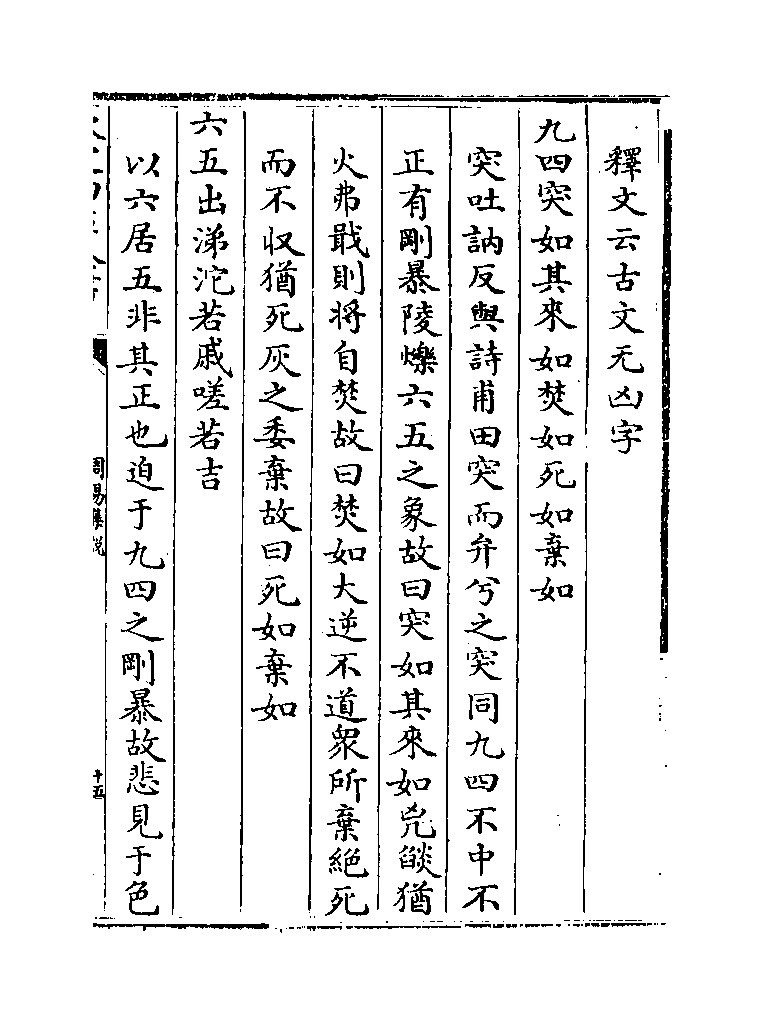 釋文云古文无凶字
九四突如其來如焚如死如棄如
突吐訥反與詩甫田突而弁兮之突同九四不中不
正有剛暴陵爍六五之象故曰突如其來如兇燄猶
火弗戢則将自焚故曰焚如大逆不道衆所棄絕死
而不収猶死灰之委棄故曰死如棄如
六五出涕沱若戚嗟若吉
以六居五非其正也迫于九四之剛暴故悲見于色
周易集說
十五